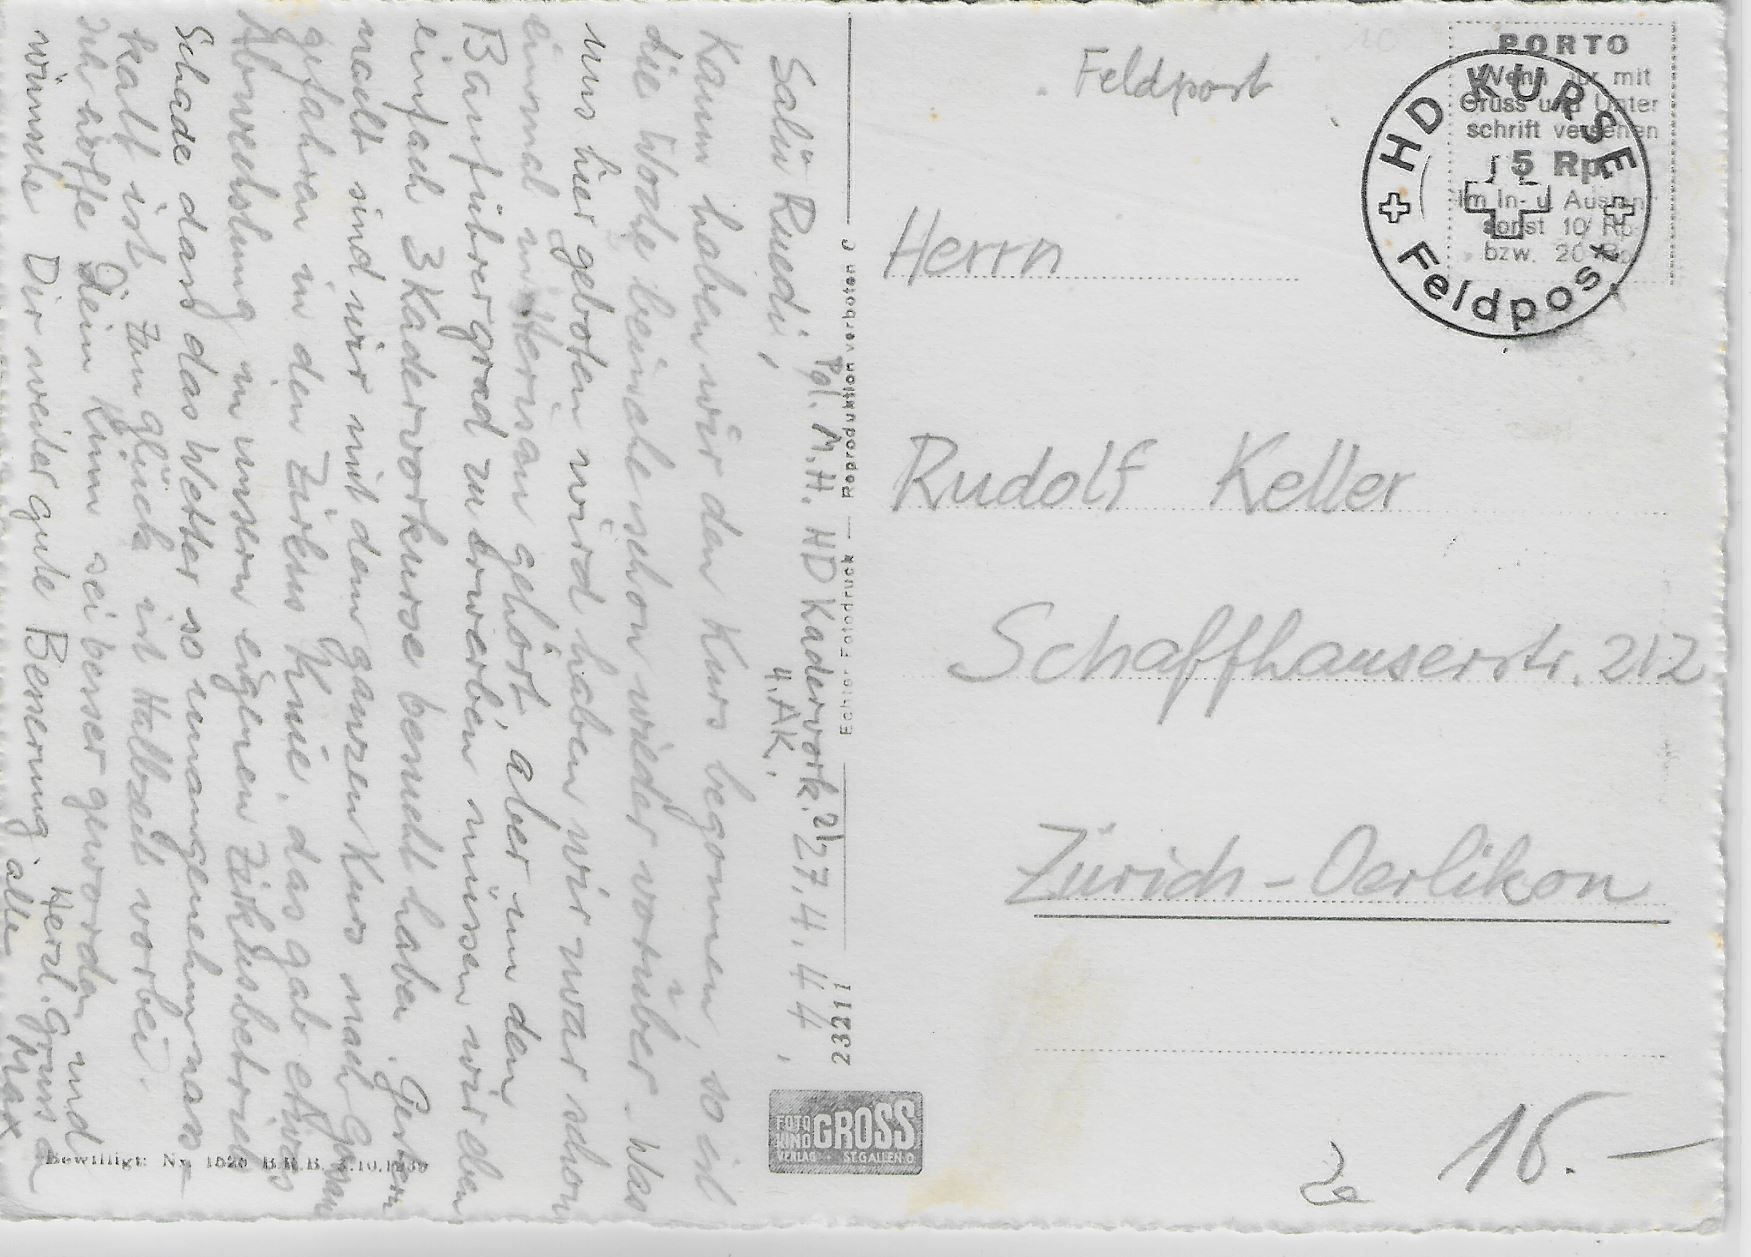 Pgl. M.H. HD Kadervork. 2/27.4.44,
4. AK.
Salü Ruedi,
Kaum haben wir den Kurs begonnen, so ist
die Woche beinahe schon wieder vorüber. Was
uns hier geboten wird haben wir zwar schon
einmal gehört, aber um den
Bauführergrad zu erwerben müssen wir eben
einfach 3 Kadervorkurse besucht haben. Gestern
nacht sind wir mit dem ganzen Kurs nach
gefahren in den Zirkus Knie, das gab etwas
Abwechslung in unsern eigenen Zirkusbetrieb
Schade dass das Wetter so unangenehm nass-
kalt ist. Zum Glück ist Halbzeit vorbei.
Ich hoffe Dein Kinn sei besser geworden und
wünsche Dir weiter gute Besserung
Herzl. Gruss an
alle Max
Bewilligt: Nr. 1526 B.R.B. 3.10.1939
Echter Fotodruck — Reproduktion verboten C
23211
FOTO
KINO
GROSS
VERLAG ST. GALLEN O.
Feldpost
PORTO
Wenn nur mit
Gruss und Unter
schrift versehen
5 Rp.
Im In- u
sonst 10 Rp.
bzw. 20 Rp.
HD KURSE
Feldpost
Herrn
Rudolf Keller
Schaffhauserstr. 212
Zürich-Oerlikon
16.—